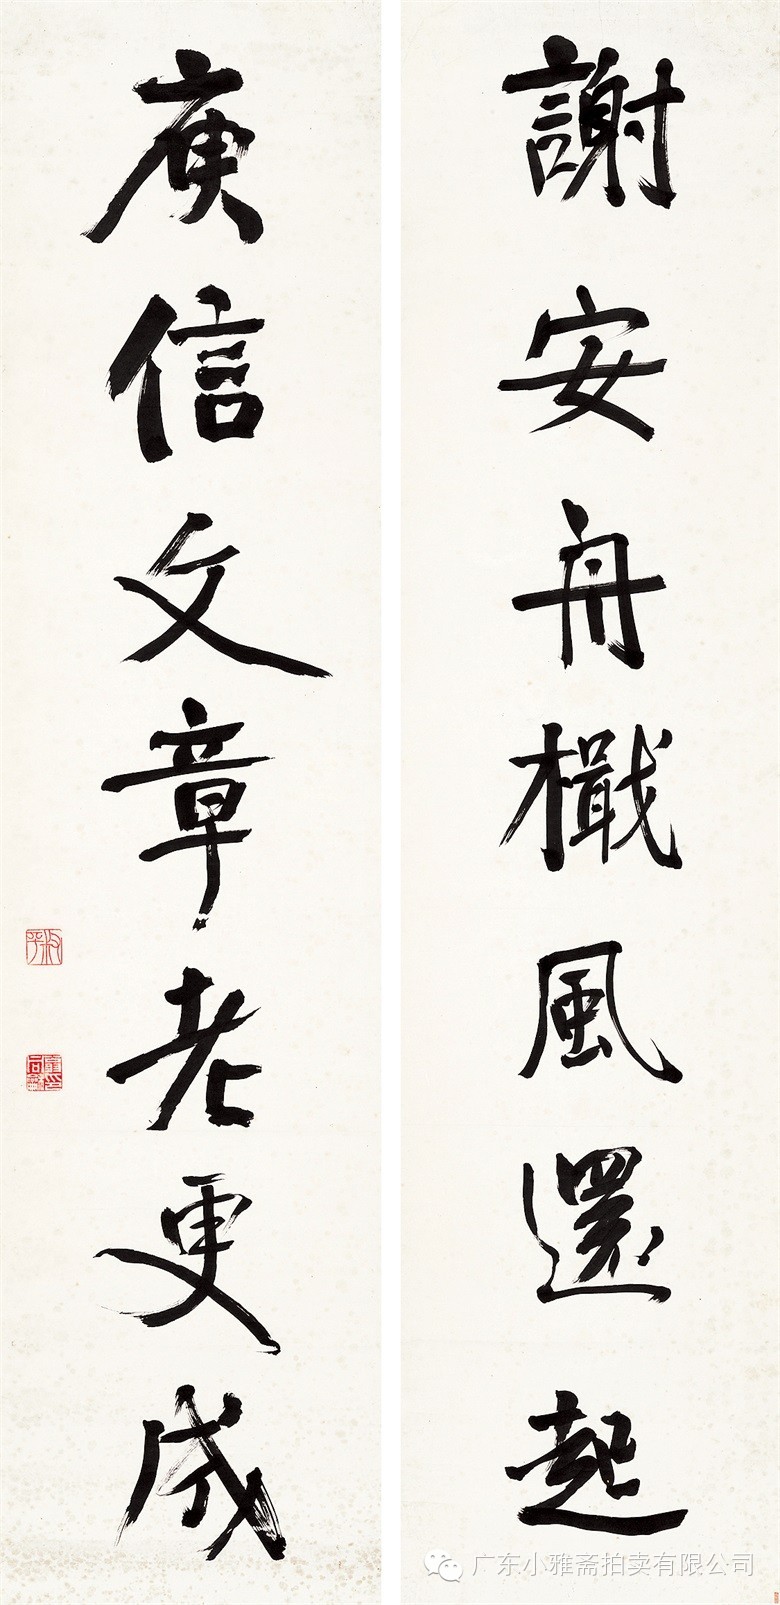 謝安舟檝風還起
庾信文章老更成
广东小雅斋拍卖有限公司